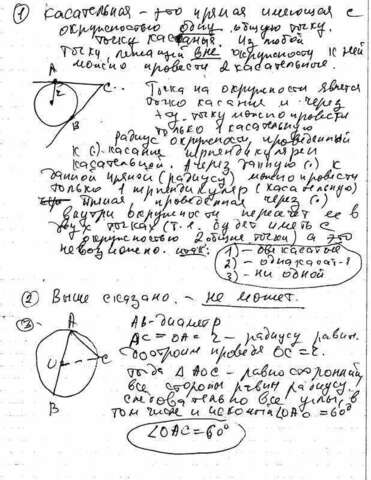 ① Касательная - это прямая имеющая с
окружностью одну общую точку.
точку касания. Из любой
точку лежащий вне окружности к ней
можно провести 2 касательные.
A C
r
B
Точка на окружности является
точкой касания и через
эту точку можно провести
только 1 касательную
Радиус окружности проведенный
к (·) касания перпендикулярен
касательной. А через данную (·) к
данной прямой (радиусу) можно провести
только 1 перпендикуляр (касательную)
Прямая проведенная через (·)
внутри окружности пересечет ее в
двух точках (т.е. будет иметь с
окружностью 2 общие точки) а это
невозможно.
1) - две касат
2) - одна касат-я
3) - ни одной
② Выше сказано. - не может.
③ A
O C
B
AB - диаметр
AC = OA = r - радиусу равны.
Достроим проведя OC = r.
тогда Δ AOC - равносторонний,
все стороны равны радиусу,
следовательно все углы, в
том числе и ∠OAC = 60°
∠OAC = 60°